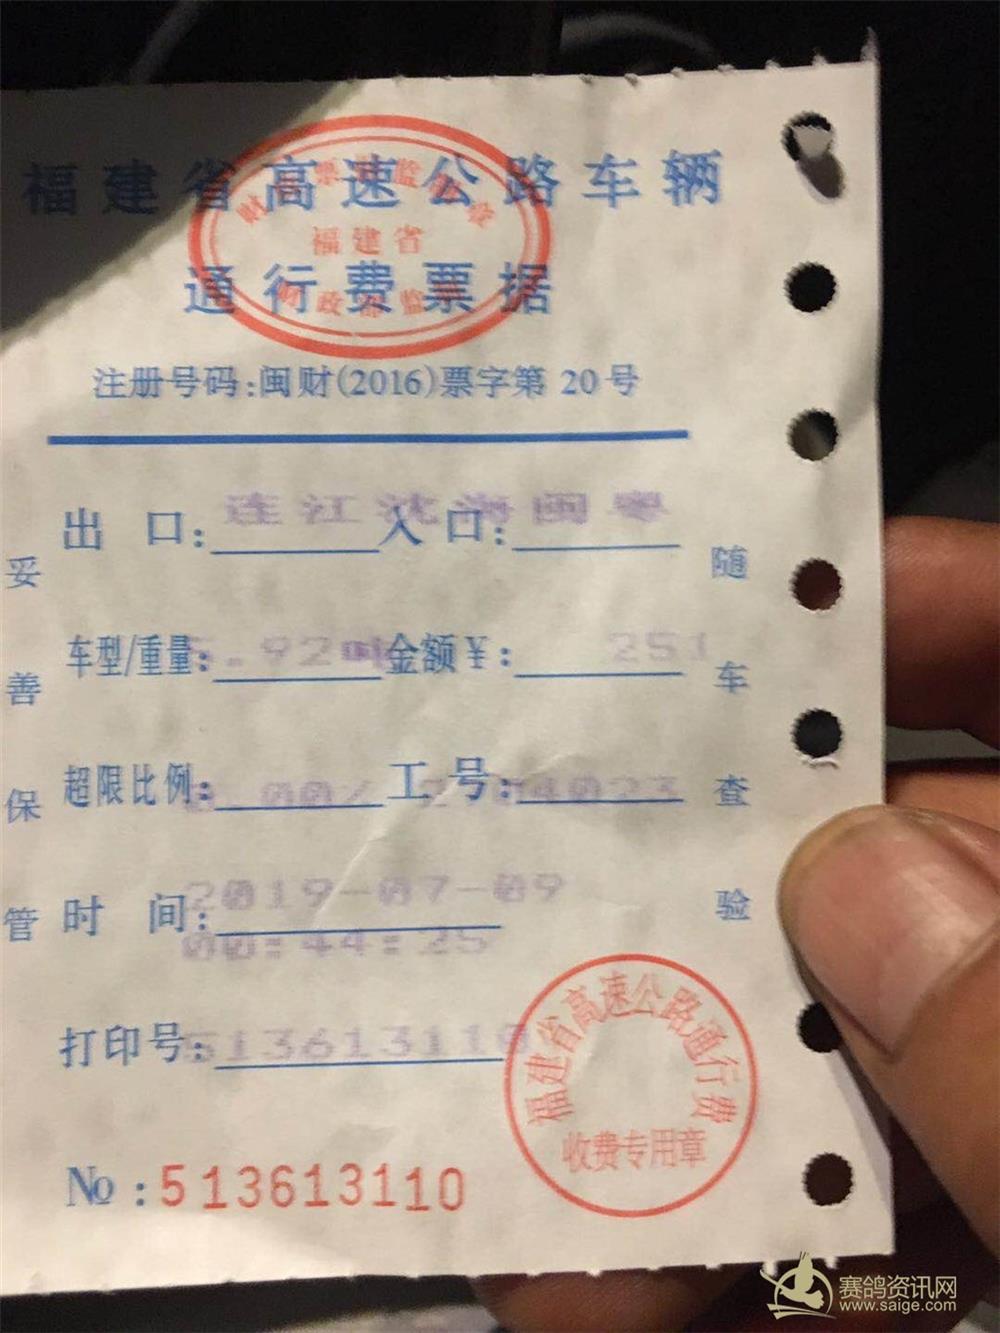 福建省高速公路车辆
通行费票据
福建省
注册号码:闽财(2016)票字第 20号
出 口: 连江 入口: 沈海闽粤
车型/重量: 5.92吨 金额¥: 251
超限比例: 0.00% 工号: 04023
时 间: 2019-07-09
00:44:25
打印号: 513613110
No:513613110
妥善保管
随车查验
福建省高速公路通行费
收费专用章
赛鸽资讯网
www.saige.com